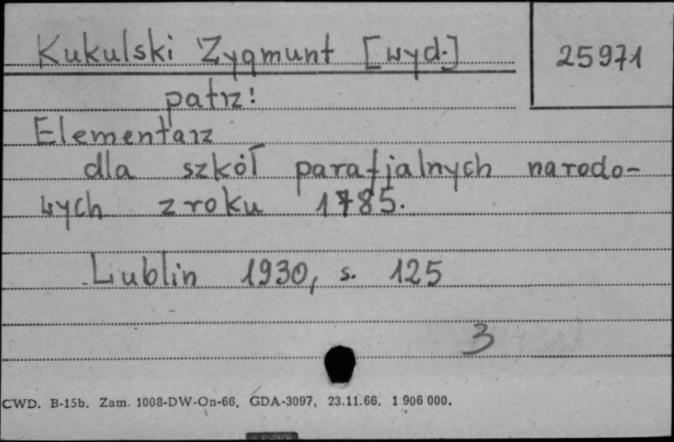 Kukulski Zygmunt [wyd.]
25971
patrz!
Elementarz
dla szkół parafjalnych narodo-
wych z roku 1785.
Lublin 1930, s. 125
3
CWD. B-15b. Zam. 1008-DW-On-66. GDA-3097. 23.11.66. 1 906 000.